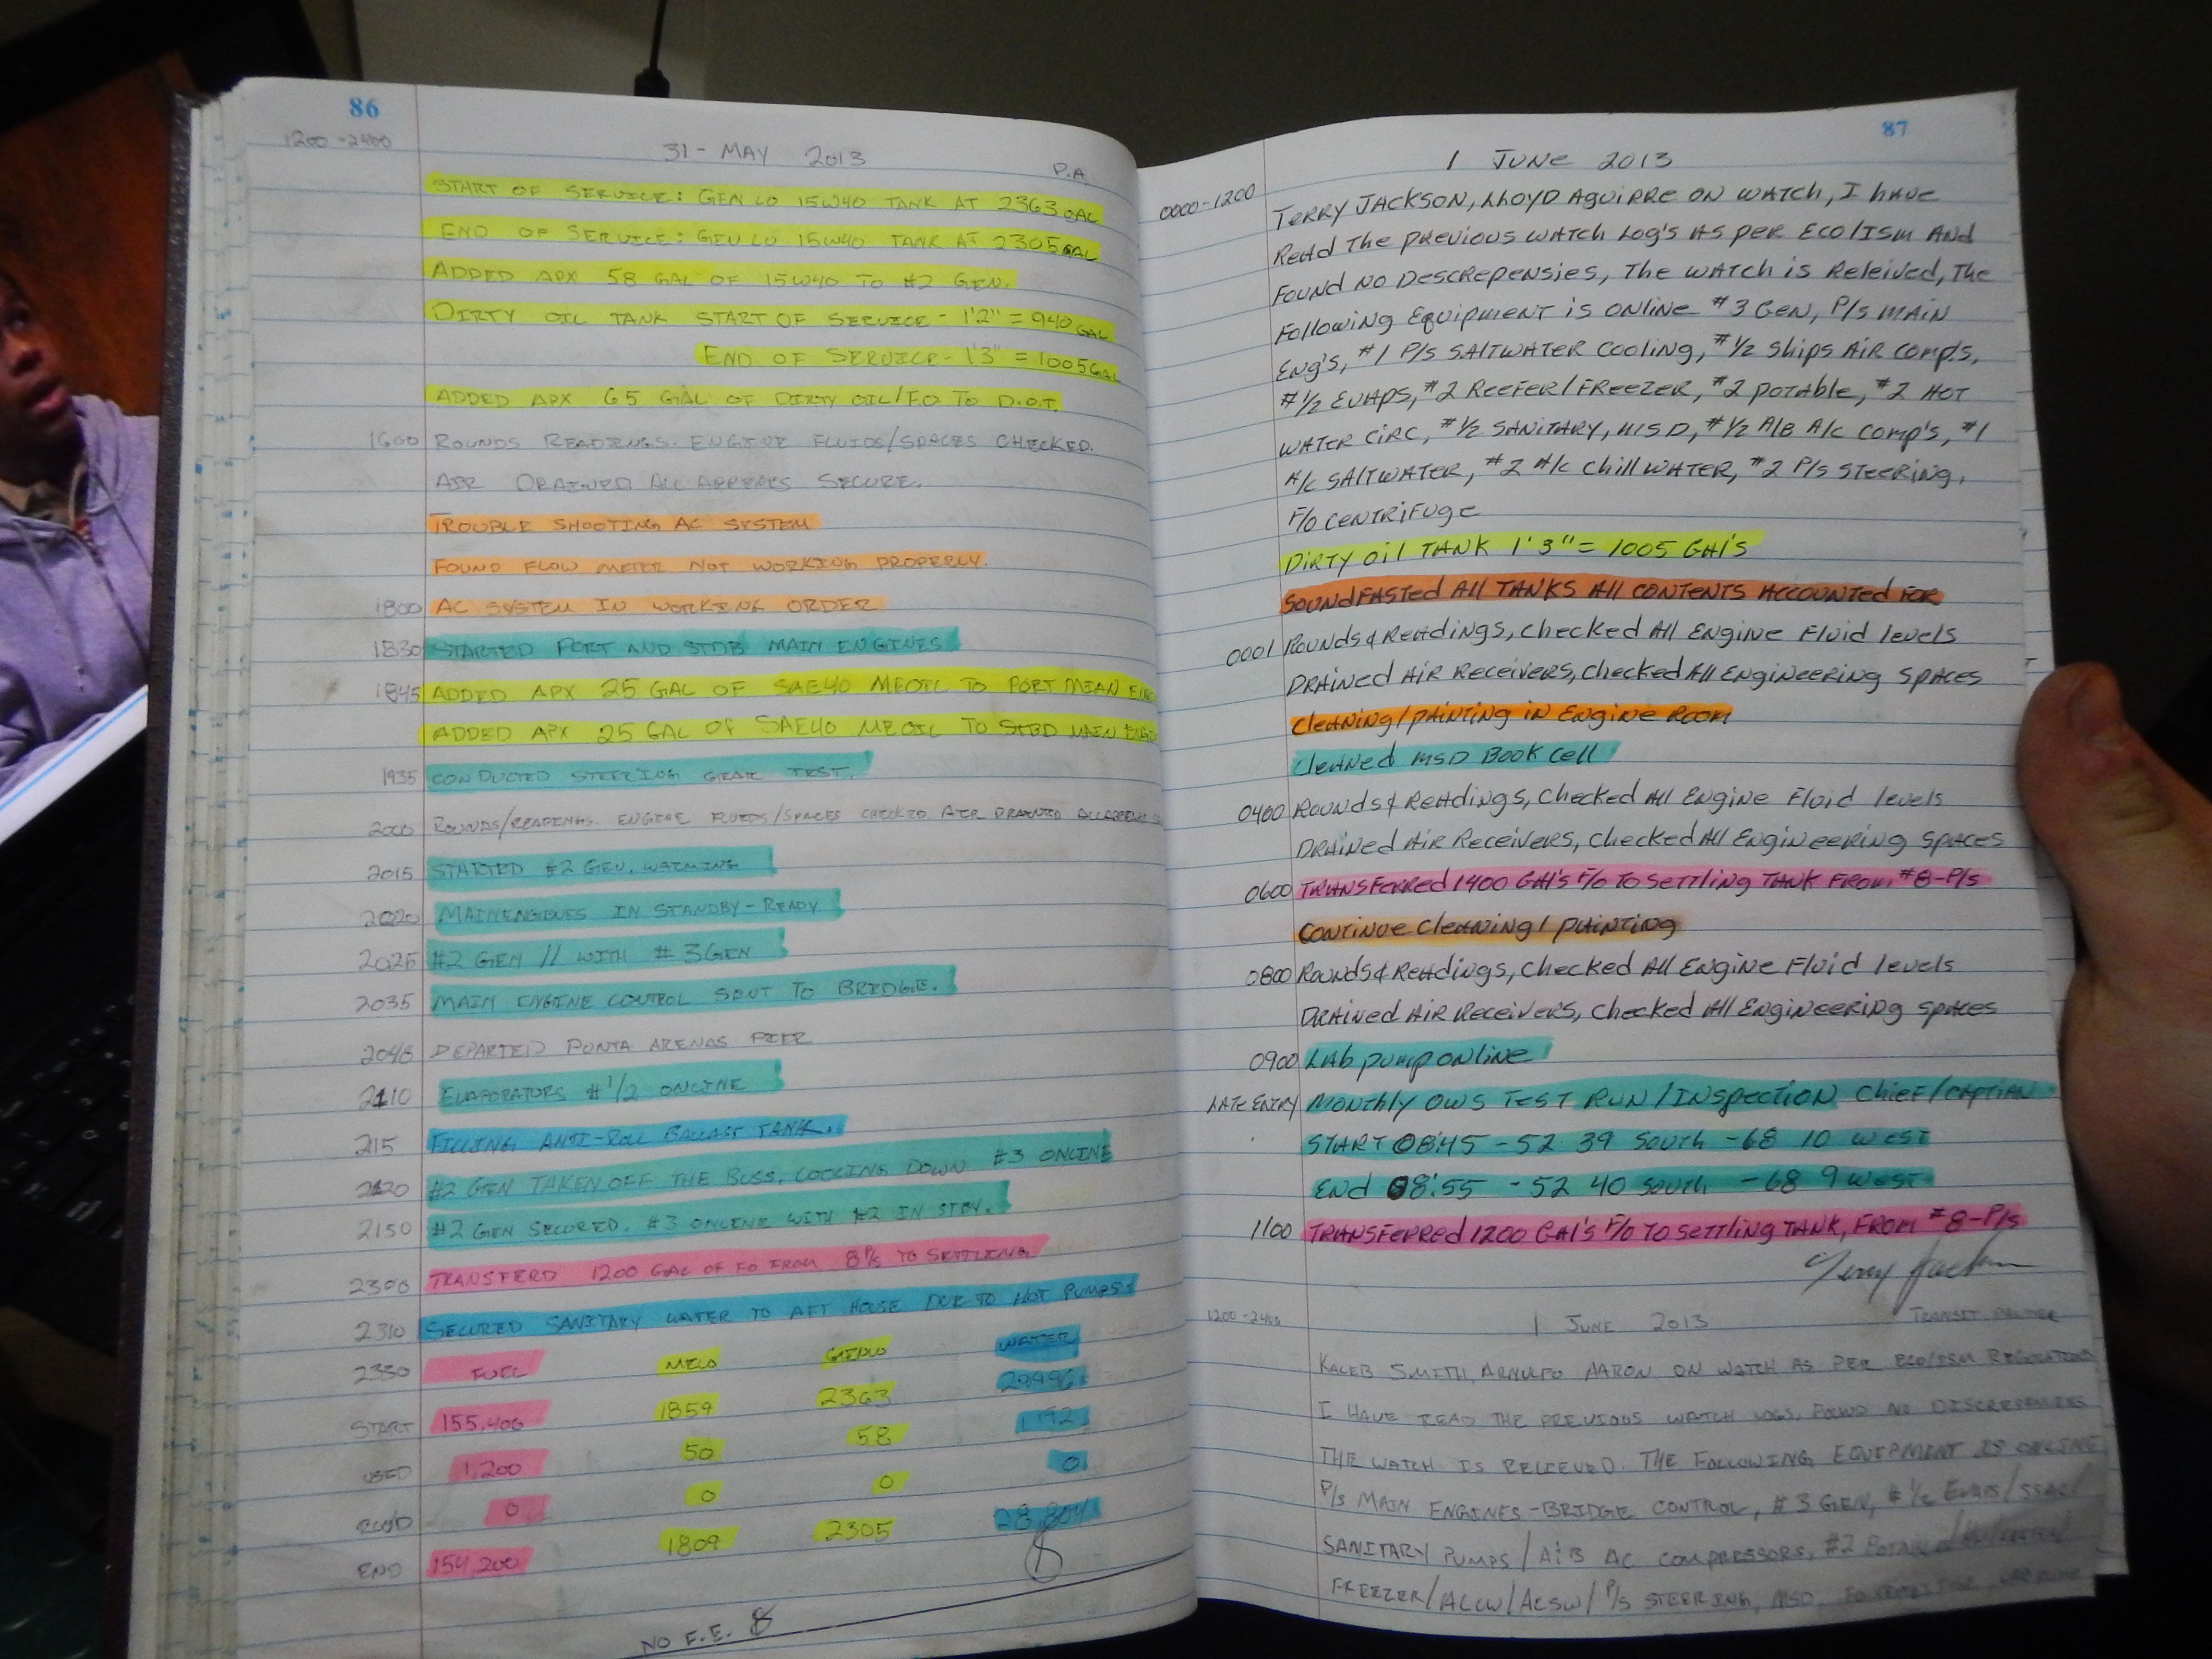 86
1200-2400
31-MAY 2013
P.A.
START OF SERVICE: GEN LO 15W40 TANK AT 2363 GAL
END OF SERVICE: GEN LO 15W40 TANK AT 2305 GAL
ADDED APX 58 GAL OF 15W40 TO #2 GEN.
DIRTY OIL TANK START OF SERVICE - 1'2" = 940 GAL
END OF SERVICE - 1'3" = 1005 GAL
ADDED APX 65 GAL OF DIRTY OIL/F.O TO D.O.T.
1600 ROUNDS READINGS. ENGINE FLUIDS/SPACES CHECKED.
AIR DRAINED ALL APPEARS SECURE.
TROUBLE SHOOTING AC SYSTEM
FOUND FLOW METER NOT WORKING PROPERLY.
1800 AC SYSTEM IN WORKING ORDER
1830 STARTED PORT AND STDB MAIN ENGINES
1845 ADDED APX 25 GAL OF SAE40 MEOIL TO PORT MIAN
ADDED APX 25 GAL OF SAE40 MEOIL TO STBD MAIN
1935 CONDUCTED STEERING GEAR TEST.
2000 ROUNDS/READINGS. ENGINE FLUIDS/SPACES CHECKED AIR DRAINED
2015 STARTED #2 GEN. WARMING
2020 MAIN ENGINES IN STANDBY-READY
2025 #2 GEN // WITH #3 GEN
2035 MAIN ENGINE CONTROL SENT TO BRIDGE.
2048 DEPARTED PUNTA ARENAS PIER
2110 EVAPORATORS #1/2 ONLINE
2115 FILLING ANTI-ROLL BALLAST TANK.
2120 #2 GEN TAKEN OFF THE BUSS, COOLING DOWN #3 ONLINE
2150 #2 GEN SECURED. #3 ONLINE WITH #2 IN STBY.
2300 TRANSFERD 1200 GAL OF FO FROM 8 P/S TO SETTLING
2310 SECURED SANITARY WATER TO AFT HOUSE DUE TO HOT PUMPS
2330 FUEL MELO GENLO WATER
START 155,400 1859 2363
USED 1,200 50 58 1,192
RCV'D 0 0 0 0
END 154,200 1809 2305 28,804
NO E.E.
87
1 JUNE 2013
0000-1200 TERRY JACKSON, LLOYD AGUIRRE ON WATCH, I HAVE
READ THE PREVIOUS WATCH LOG'S AS PER ECO/ISM AND
FOUND NO DESCREPENSIES, THE WATCH IS RELEIVED, THE
FOLLOWING EQUIPMENT IS ONLINE #3 GEN, P/S MAIN
ENG'S, #1 P/S SALTWATER COOLING, #1/2 SHIPS AIR COMP'S,
#1/2 EVAPS, #2 REEFER/FREEZER, #2 POTABLE, #2 HOT
WATER CIRC, #1/2 SANITARY, MSD, #1/2 A/B A/C COMP'S, #1
A/C SALTWATER, #2 A/C CHILL WATER, #2 P/S STEERING,
F/O CENTRIFUGE
DIRTY OIL TANK 1'3" = 1005 GAL'S
SOUNDFASTED ALL TANKS ALL CONTENTS ACCOUNTED FOR
0001 ROUNDS & READINGS, CHECKED ALL ENGINE FLUID LEVELS
DRAINED AIR RECEIVERS, CHECKED ALL ENGINEERING SPACES
CLEANING/PAINTING IN ENGINE ROOM
CLEANED MSD BOOK CELL
0400 ROUNDS & READINGS, CHECKED ALL ENGINE FLUID LEVELS
DRAINED AIR RECEIVERS, CHECKED ALL ENGINEERING SPACES
0600 TRANSFERRED 1400 GAL'S F/O TO SETTLING TANK FROM #8-P/S
CONTINUE CLEANING/PAINTING
0800 ROUNDS & READINGS, CHECKED ALL ENGINE FLUID LEVELS
DRAINED AIR RECEIVERS, CHECKED ALL ENGINEERING SPACES
0900 LAB PUMP ONLINE
LATE ENTRY MONTHLY OWS TEST RUN/INSPECTION CHIEF/CAPTIAN
START 08:45 - 52 39 SOUTH - 68 10 WEST
END 08:55 - 52 40 SOUTH - 68 9 WEST
1100 TRANSFERRED 1200 GAL'S F/O TO SETTLING TANK, FROM #8-P/S
Terry Jackson
1200-2400
1 JUNE 2013
TRANSIT
KALEB SMITH, ARNULFO AARON ON WATCH AS PER ECO/ISM REGULATIONS
I HAVE READ THE PREVIOUS WATCH LOGS. FOUND NO DISCREPENCIES
THE WATCH IS RELIEVED. THE FOLLOWING EQUIPMENT IS ONLINE
P/S MAIN ENGINES-BRIDGE CONTROL, #3 GEN, #1/2 EVAPS/
SANITARY PUMPS/A+B AC COMPRESSORS, #2
FREEZER/ACCW/ACSW/P/S STEERING, MSD,